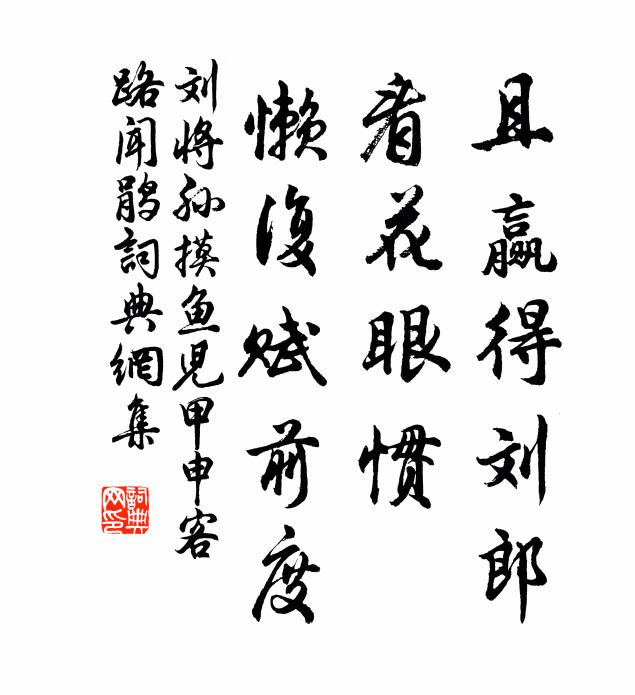 且赢得刘郎
看花眼惯
懒复赋前度
刘将孙摸鱼儿甲申客
路闻鹃词典網集
詞典网印